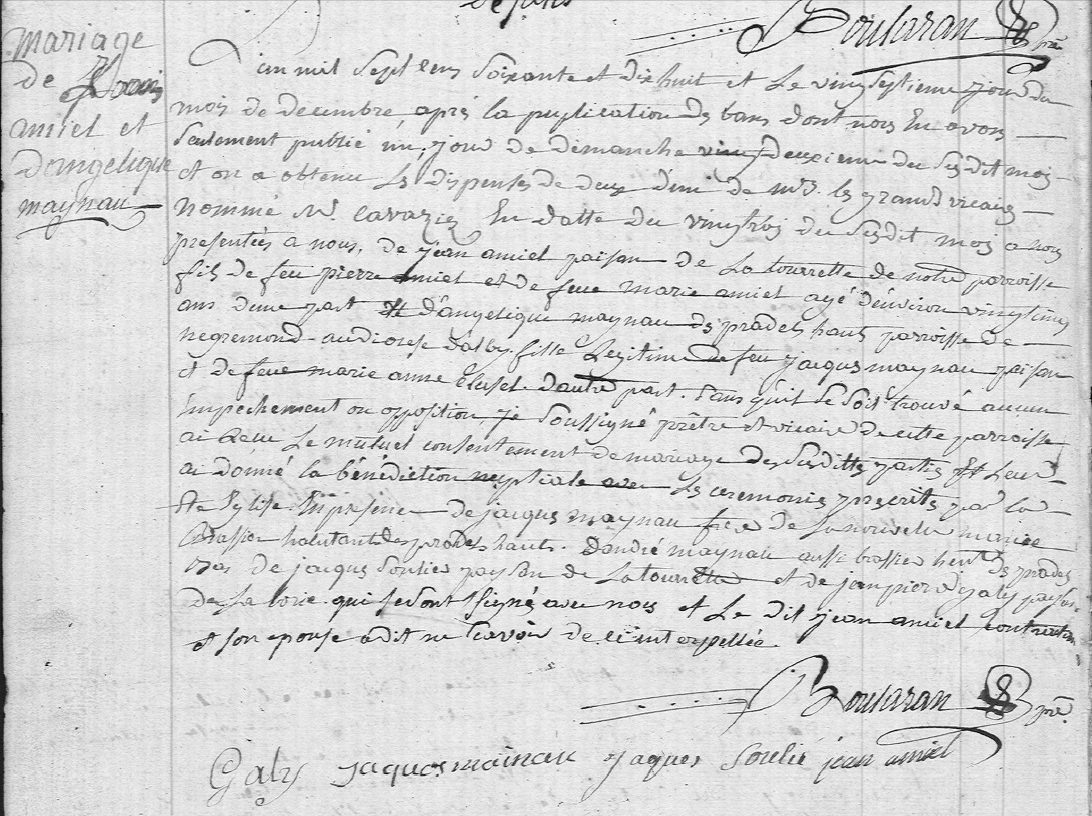 Boularan ptre
mariage
de
amiel et
dangelique
maynau
L'an mil sept cens soixante et dix huit et le vinseptieme jour du
mois de decembre, après la puplication des bans dont nous En avons
seulement publié un, jour de demanche vingdeuxieme du susdit mois
et on a obtenu les dispenses de deux d'eux de mrs. les grands vicaires
nommé Mr. Cavaziez En datte du vingtrois du susdit mois a nous
presentées a nous, de jean amiel paisan de la tourrette de notre parroisse
fils de feu pierre amiel et de feue marie amiel agé d'environ vingtcinq
ans d'une part Et d'angelique maynau des pradels hauts parroisse de
negremond audiocese d'alby fille Legitime de feu jaques maynau paisan
et de feue marie anne clusel d'autre part. sans qu'il se soit trouvé aucun
impechement ou opposition, je soussigné prêtre et vicaire de cette parroisse
ai Reçu Le mutuel consentement de mariage desSusdittes parties Et Leur
ai donné la bénédiction nuptiale avec Les ceremonies prescrites par la
Ste Eglise. En presence de jaques maynau frere de la nouvelle mariée
Brassier habitant des pradels hauts. D'andré maynau aussi brassier des pradels
de jaques Soulié paysan de Latourrette et de jean pierre galy paisan
de la qui se sont signés avec nous et Le dit jean amiel contractant
et son epouse a dit ne sçavoir de ce interpellée.
Boularan ptre.
Galy jaques mainau jaques Soulié jean amiel